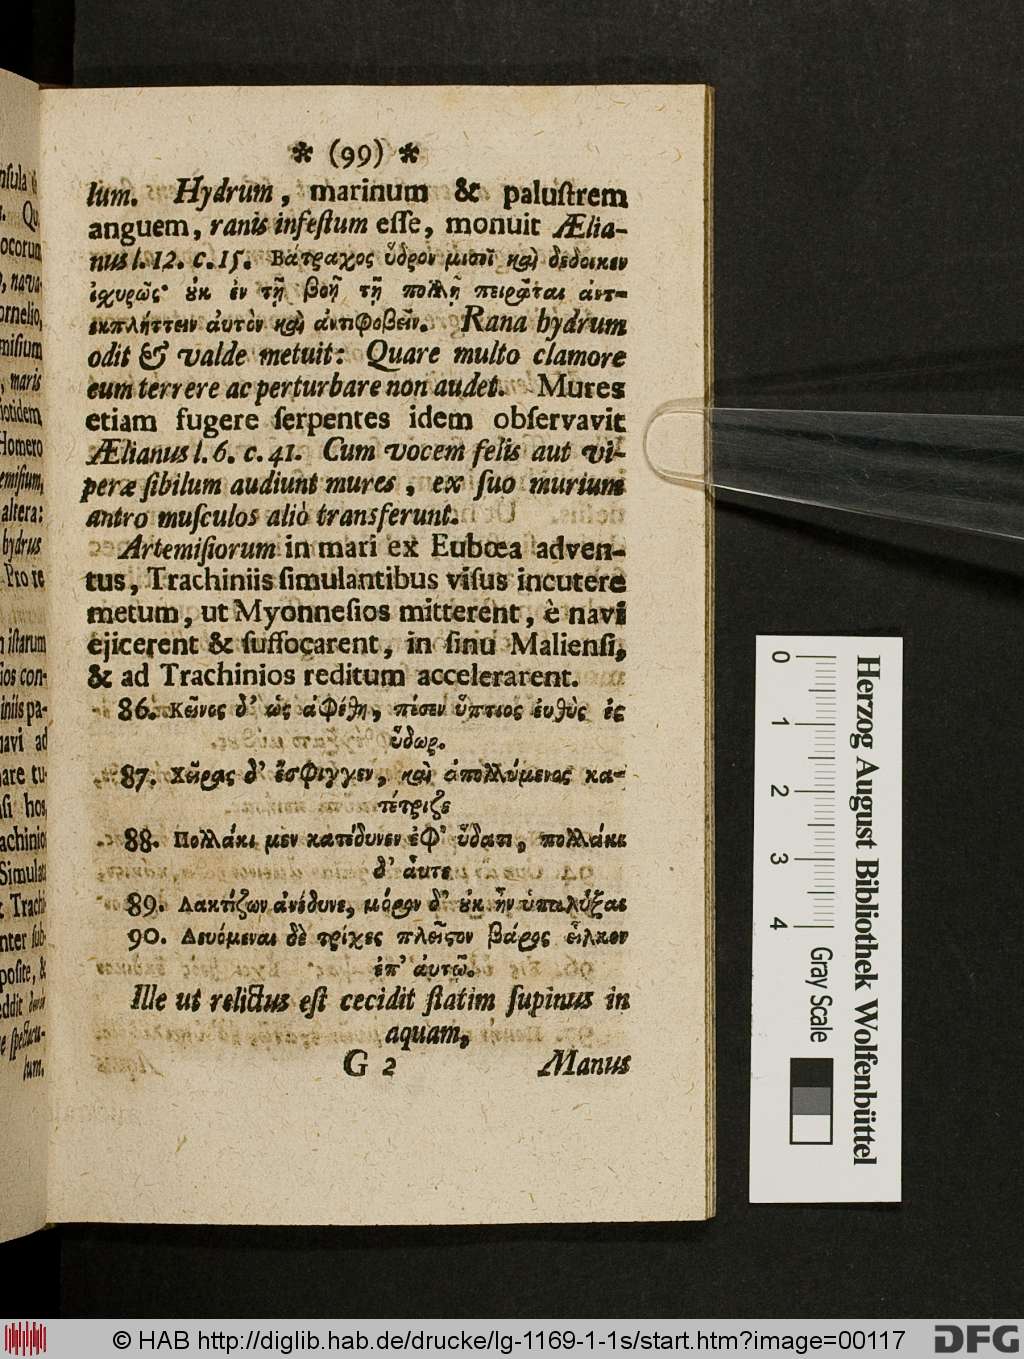 * (99) *
lum. Hydrum, marinum & paluſtrem
anguem, ranis infeſtum eſſe, monuit Ælia-
nus l. 12. c. 15. Βάτραχος ὕδρον μισεῖ καὶ δέδοικεν
ἰχυρῶς· ὐκ ἐν τῇ βοῇ τῇ πολλῇ πειρᾶται ἀντ-
εκπλήττειν ἀυτὸν καὶ ἀντιφοβεῖν. Rana hydrum
odit & valde metuit: Quare multo clamore
eum terrere ac perturbare non audet. Mures
etiam fugere ſerpentes idem obſervavit
Ælianus l. 6. c. 41. Cum vocem felis aut vi-
peræ ſibilum audiunt mures, ex ſuo murium
antro muſculos aliò transferunt.
Artemiſiorum in mari ex Eubœa adven-
tus, Trachiniis ſimulantibus viſus incutere
metum, ut Myonneſios mitterent, è navi
ejicerent & ſuffocarent, in ſinu Malienſi,
& ad Trachinios reditum accelerarent.
86. Κεῖνος δ' ὡς ἀφέθη, πέσεν ὕπτιος ἐυθὺς ἐς
ὕδωρ.
87. Χεῖρας δ' ἔσφιγγεν, καὶ ἀπολλύμενος κα-
τέτριζε
88. Πολλάκι μεν κατέδυνεν ἐφ' ὕδατι, πολλάκι
δ' ἆυτε
89. Λακτίζων ἀνέδυνε, μόρον δ' ὐκ ἦν ὑπαλύξαι
90. Δευόμεναι δὲ τρίχες πλεῖστον βάρος εἷλκον
ἐπ' ἀυτῷ.
Ille ut relictus eſt cecidit ſtatim ſupinus in
aquam,
G 2 Manus
nſula
Qu
ocorum
nava-
ornelio,
miſium
, maris
Homero
emiſium,
altera:
hydrus
Pro re
iſtarum
ſios con-
iniis pa-
navi ad
nare tu-
ſi hos
achinio
Simula
Trach
nter ſub-
poſite, &
eddit
ſpectacu-
lum.
0 1 2 3 4
Herzog August Bibliothek Wolfenbüttel
Gray Scale
© HAB http://diglib.hab.de/drucke/lg-1169-1-1s/start.htm?image=00117
DFG